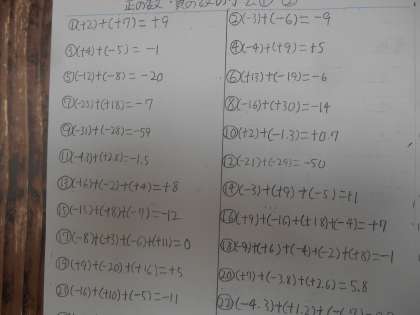 正の数・負の数の
①(+2)+(+7)=+9
②(-3)+(-6)=-9
③(+4)+(-5)=-1
④(-4)+(+9)=+5
⑤(-12)+(-8)=-20
⑥(+13)+(-19)=-6
⑦(-25)+(+18)=-7
⑧(-16)+(+30)=-14
⑨(-31)+(-28)=-59
⑩(+2)+(-1.3)=+0.7
⑫(-21)+(-29)=-50
⑬(+6)+(-2)+(+4)=+8
⑭(-3)+(+9)+(-5)=+1
⑮(-13)+(+8)+(-7)=-12
⑯(+9)+(-16)+(+18)+(-4)=+7
⑰(-8)+(+3)+(-6)+(+11)=0
⑱(-9)+(+6)+(-4)+(-2)+(+8)=-1
⑲(+9)+(-20)+(+16)=+5
⑳(+7)+(-3.8)+(+2.6)=5.8
㉑(-16)+(+10)+(-5)=-11
㉒(-4.3)+(+1.2)+